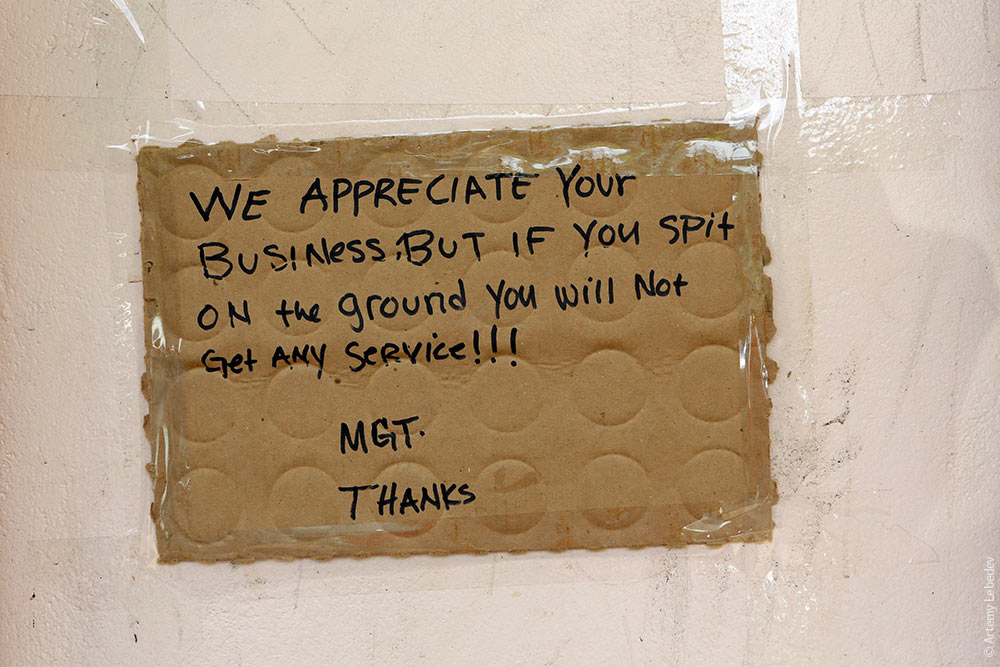 WE APPRECIATE Your
BUSINess. BUT IF You SPit
ON the ground You will Not
Get ANY SeRVice!!!
MGT.
THANKS
© Artemy Lebedev